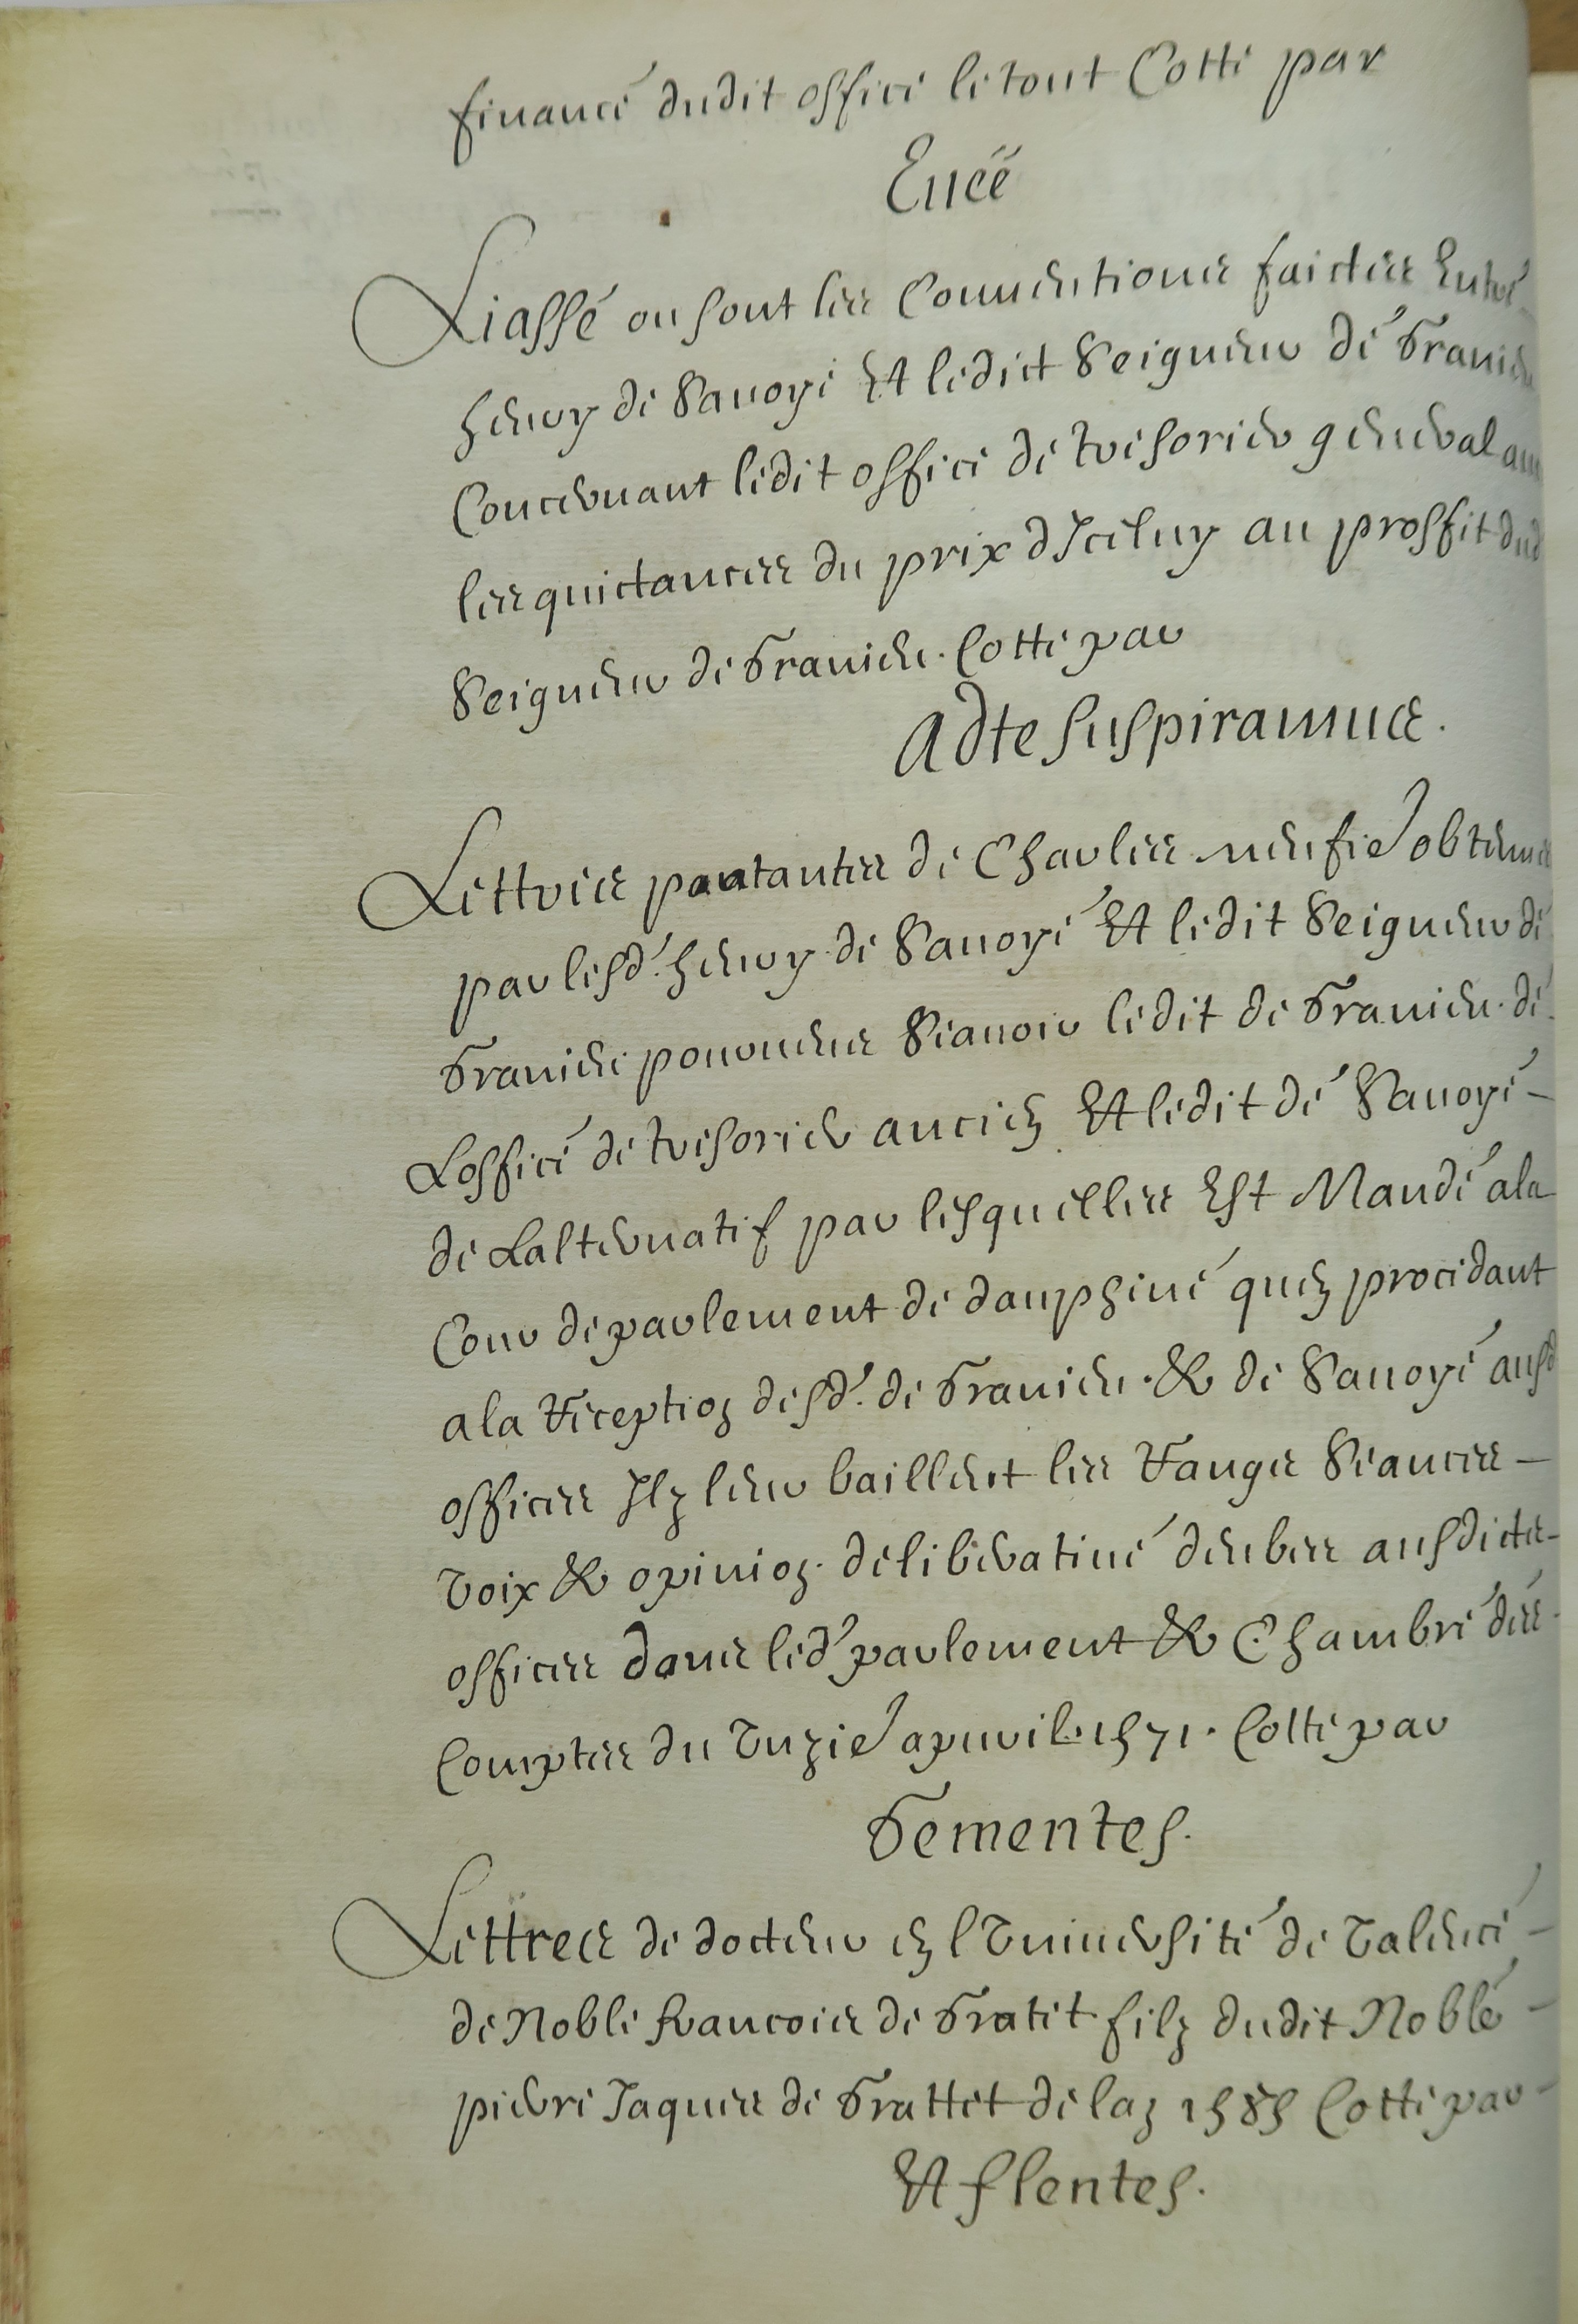 finance dudit office le tout Cotte par
Euæ
Liasse ou sont les Conuentions faictes Entre
henry de Sauoye Et ledict Seigneur de Granieu
Concernant ledit office de tresorier general
les quictances du prix d Iceluy au proffit dud
Seigneur de Granieu. Cotte par
Ad te suspiramus.
Lettres pattantes de Charles neufie obtenues
par lesd. henry de Sauoye Et ledit Seigneur de
Granieu pourueus Scauoir ledit de Granieu. de
Loffice de tresorier ancien Et ledit de Sauoye –
de Lalternatif par lesquelles Est Mandé a la
Cour de parlement de dauphiné quen procedant
a la Reception desd. de Granieu. & de Sauoye ausd
offices Ilz leur baillent les Rangs Seances –
Voix & opinion deliberatiue deubes ausdicts –
offices dans led parlement & Chambre des
Comptes du Unzie apuril. 1571. Cotte par
Gementes.
Lettres de docteur en l Uniuersité de Valence –
de Noble francois de Gratet filz dudit Noble –
pierre Jaques de Grattet de lan 1585 Cotte par –
Et flentes.